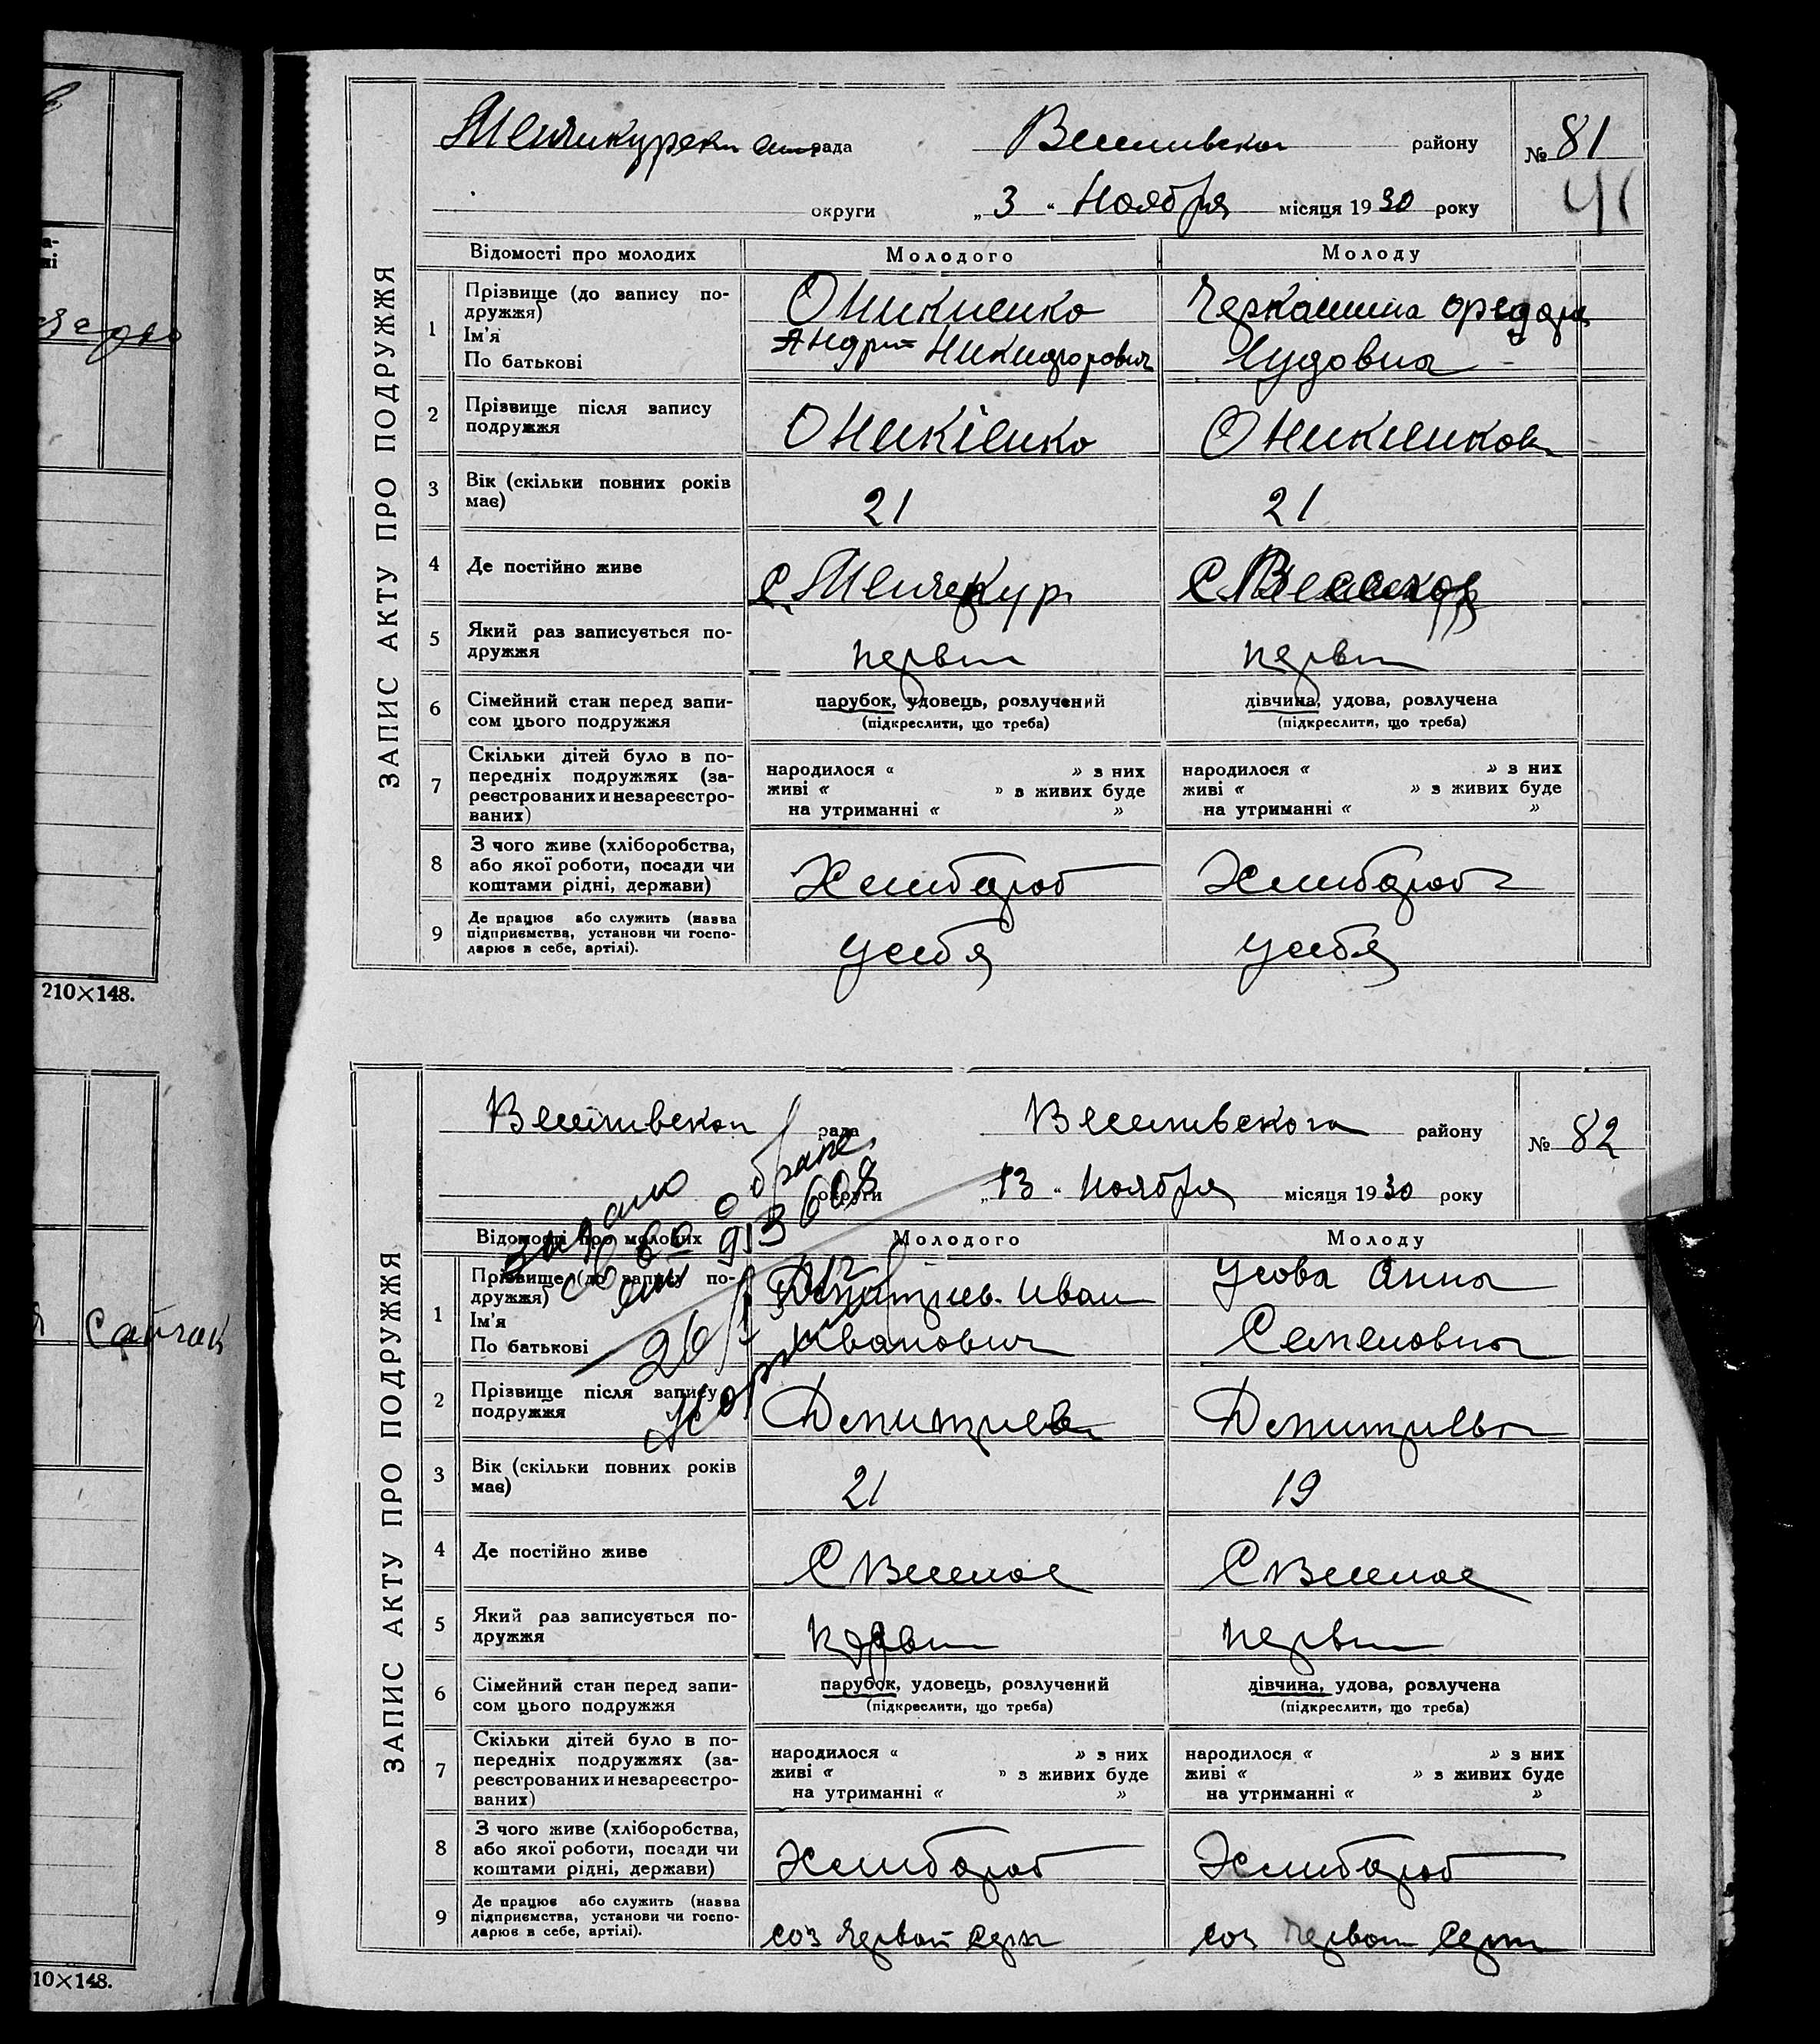 ЗАПИС АКТУ ПРО ПОДРУЖЖЯ
рада Веселивског району № 81
41
округи „ 3 “ Ноября місяця 19 30 року
Відомості про молодих Молодого Молоду
1 Прізвище (до запису по-
дружжя)
Ім'я
По батькові
Оникиенко
Андрий Никифорович
Черкашина
2 Прізвище після запису
подружжя
Оникіенко Оникиенков
3 Вік (скільки повних років
має)
21 21
4 Де постійно живе
с.
С
5 Який раз записується по-
дружжя
первий первий
6 Сімейний стан перед запи-
сом цього подружжя
парубок, удовець, розлучений дівчина, удова, розлучена
(підкреслити, що треба) (підкреслити, що треба)
7 Скільки дітей було в по-
передніх подружжях (за-
реєстрованих и незареєстро-
ваних)
народилося « » з них народилося « » з них
живі « » з живих буде живі « » з живих буде
на утриманні « » на утриманні « »
8 З чого живе (хліборобства,
або якої роботи, посади чи
коштами рідні, держави)
Хлибороб Хлибороб
9 Де працює або служить (назва
підприємства, установи чи госпо-
дарює в себе, артілі).
у себя у себя
210×148.
ЗАПИС АКТУ ПРО ПОДРУЖЖЯ
Веселивской рада Веселивского району № 82
округи „ 13 “ Ноября місяця 19 30 року
о браке
Відомості про молодих Молодого Молоду
1 Прізвище (до запису по-
дружжя)
Ім'я
По батькові
Дмитриев Иван
Иванович
Усова Анна
Семеновна
2 Прізвище після запису
подружжя
Дмитриев Дмитриева
3 Вік (скільки повних років
має)
21 19
4 Де постійно живе
С Веселое С Веселое
5 Який раз записується по-
дружжя
первий первий
6 Сімейний стан перед запи-
сом цього подружжя
парубок, удовець, розлучений дівчина, удова, розлучена
(підкреслити, що треба) (підкреслити, що треба)
7 Скільки дітей було в по-
передніх подружжях (за-
реєстрованих и незареєстро-
ваних)
народилося « » з них народилося « » з них
живі « » з живих буде живі « » з живих буде
на утриманні « » на утриманні « »
8 З чого живе (хліборобства,
або якої роботи, посади чи
коштами рідні, держави)
Хлибороб Хлибороб
9 Де працює або служить (назва
підприємства, установи чи госпо-
дарює в себе, артілі).
соз соз
10×148.